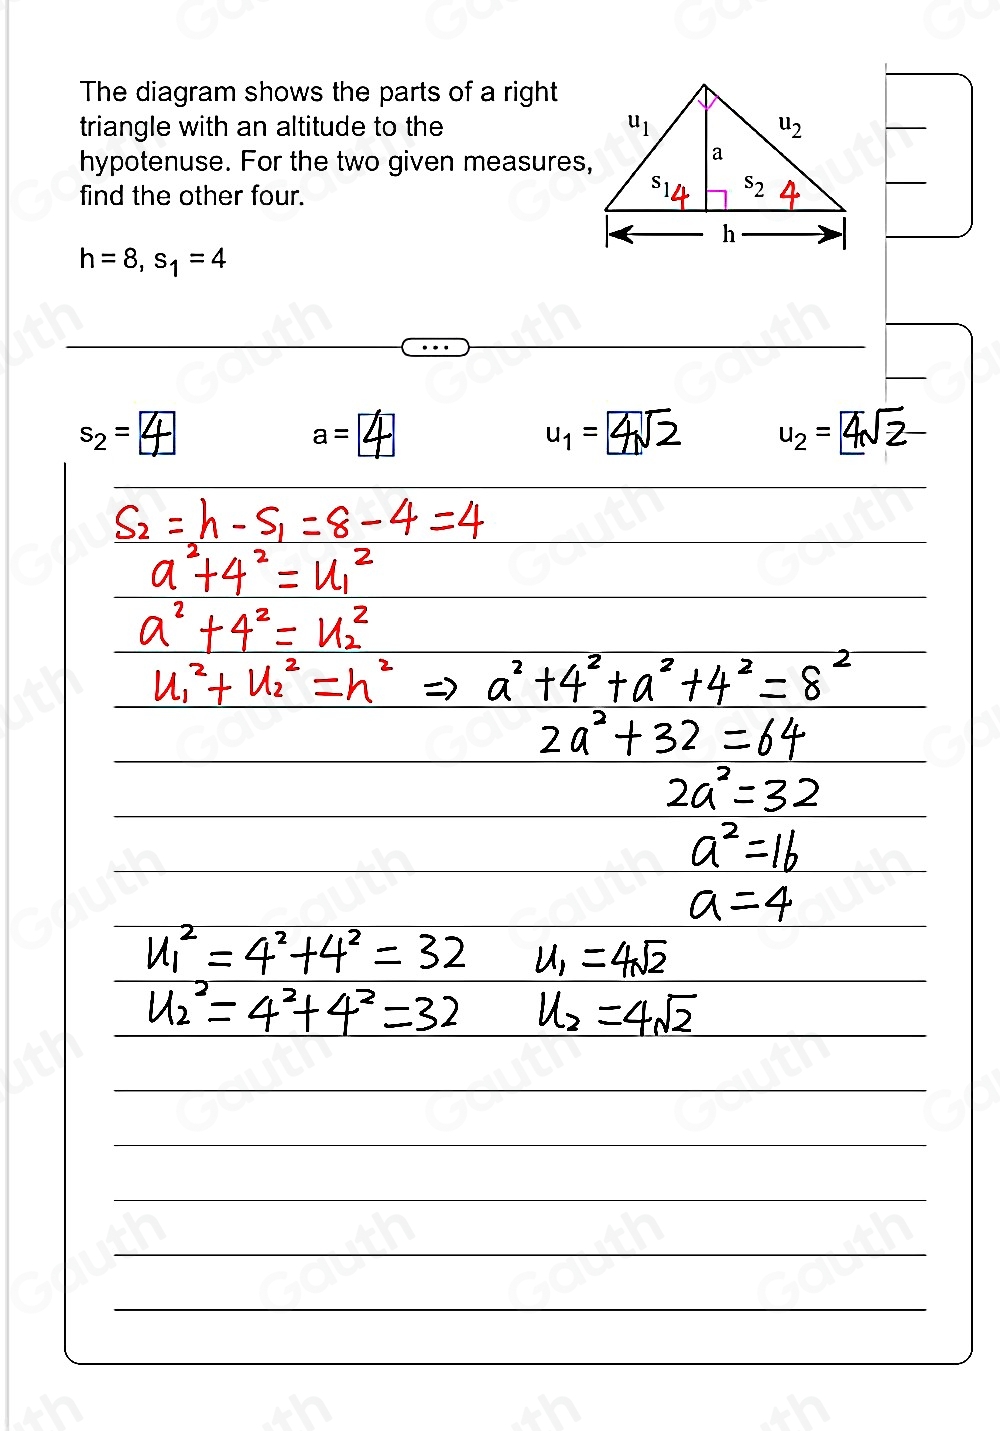 The diagram shows the parts of a right
triangle with an altitude to the
hypotenuse. For the two given measures,
find the other four.
h = 8, s₁ = 4
u₁ u₂
a
s₁ 4 s₂ 4
h
s₂ = 4 a = 4 u₁ = 4√2 u₂ = 4√2
S₂ = h - S₁ = 8 - 4 = 4
a² + 4² = u₁²
a² + 4² = u₂²
u₁² + u₂² = h² ⇒ a² + 4² + a² + 4² = 8²
2a² + 32 = 64
2a² = 32
a² = 16
a = 4
u₁² = 4² + 4² = 32 u₁ = 4√2
u₂² = 4² + 4² = 32 u₂ = 4√2
Gauth